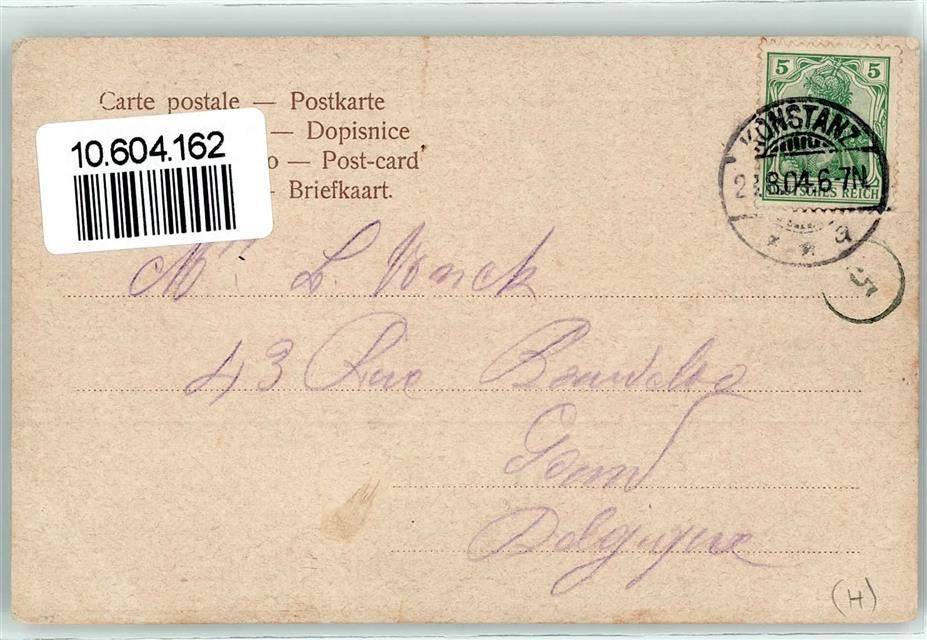 Carte postale — Postkarte
— Dopisnice
o — Post-card
— Briefkaart.
10.604.162
5 5
DEUTSCHES REICH
KONSTANZ
8.04.6-7N.
* * a
Mr L. Vonck
43 Rue
Gand
Belgique
(H)